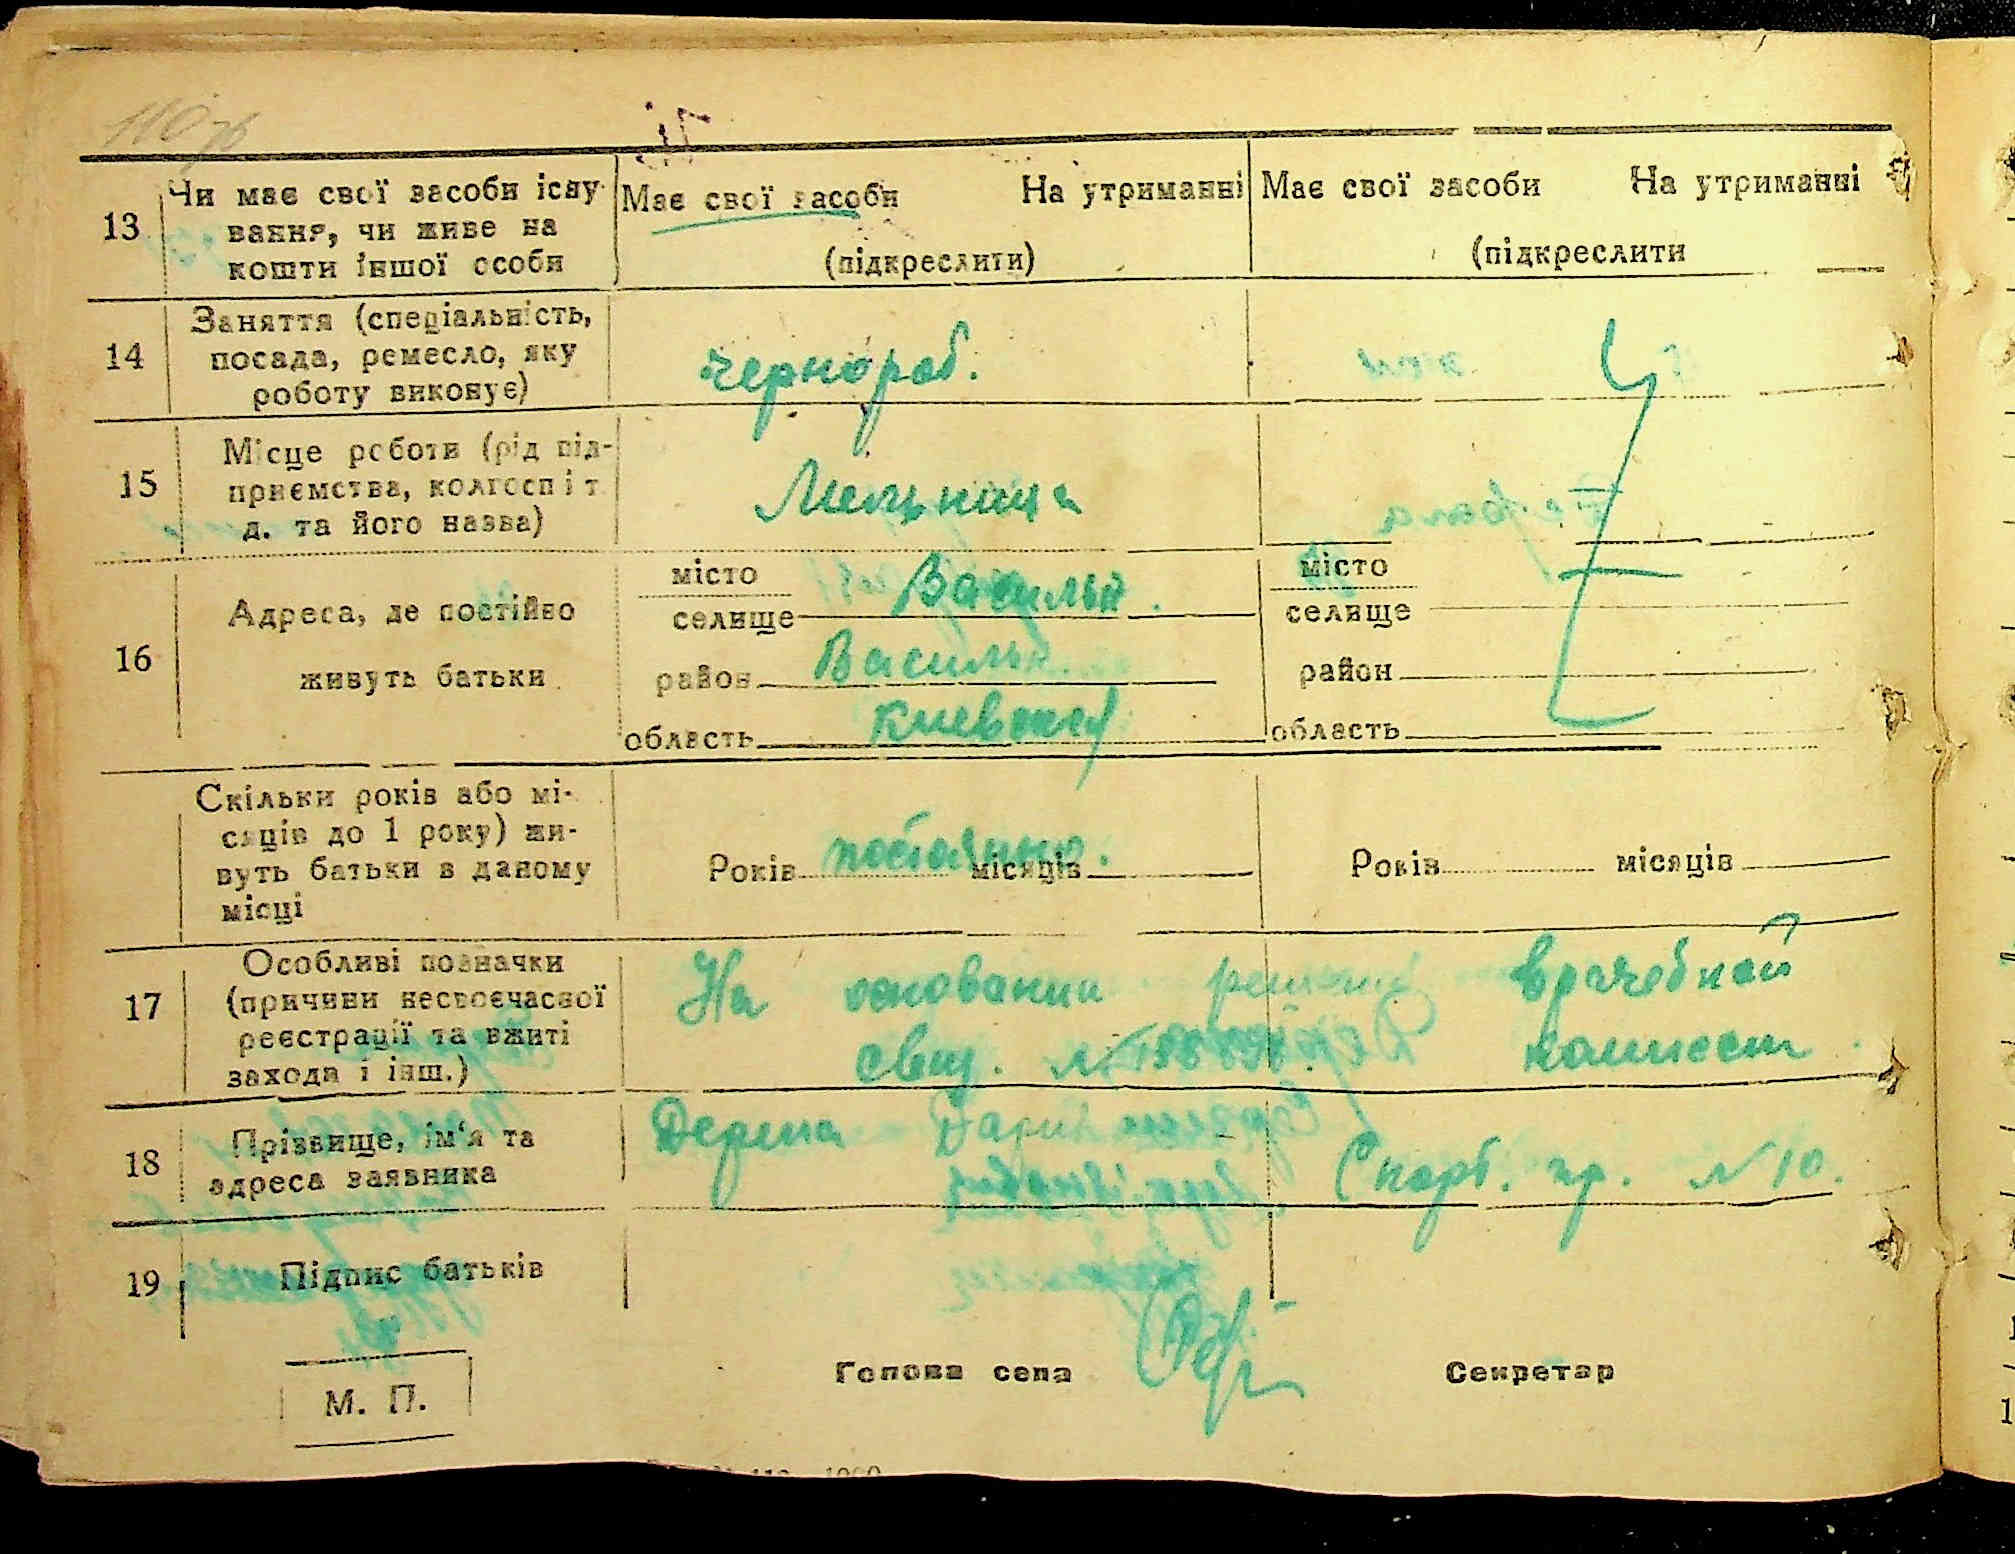 110 зв
13 Чи має свої засоби існу
вання, чи живе на
кошти іншої особи
Має свої засоби На утриманні
(підкреслити)
Має свої засоби На утриманні
(підкреслити
14 Заняття (спеціальність,
посада, ремесло, яку
роботу виконує)
чернораб.
15 Місце роботи (рід під-
приємства, колгосп і т
д. та його назва)
Мельница
16 Адреса, де постійно
живуть батьки
місто
селище Васильк.
район Васильк.
область Киевская
місто
селище
район
область
Скільки років або мі-
сяців до 1 року) жи-
вуть батьки в даному
місці
Років постоянно. місяців
Років місяців
17 Особливі позначки
(причини несвоєчасної
реєстрації та вжиті
захода і інш.)
На основании решения врачебной
свид. № комиссии.
18 Прізвище, ім'я та
адреса заявника
Дерина Дария Спорт. пр. № 10.
19 Підпис батьків
М. П.
Голова села
Секретар